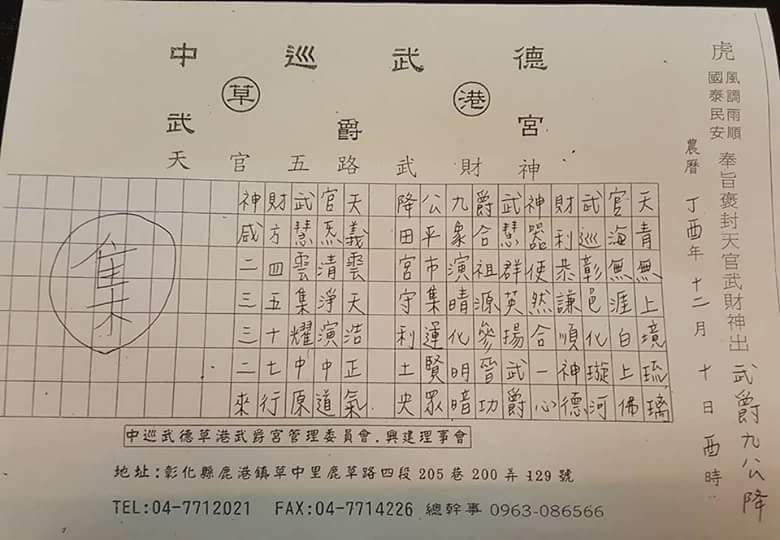 中巡武德
草 港
武爵宮
天官五路武財神
虎
風調雨順
國泰民安
奉旨褒封天官武財神出 武爵九公降
農曆 丁酉年十二月十日酉時
天青無上境琉璃
官海無涯白上佛
武巡彰邑化璇河
財利恭謙順神德
神器使然合一心
武慧群英揚武爵
爵合祖源參晉功
九象演晴化明暗
公平市集運賢眾
降田宮守利土央
天義雲天浩正氣
官炁清淨演中道
武慧雲集耀中原
財方四五十七行
神咸二三三二來
集
中巡武德草港武爵宮管理委員會.興建理事會
地址:彰化縣鹿港鎮草中里鹿草路四段205巷200弄129號
TEL:04-7712021 FAX:04-7714226 總幹事 0963-086566